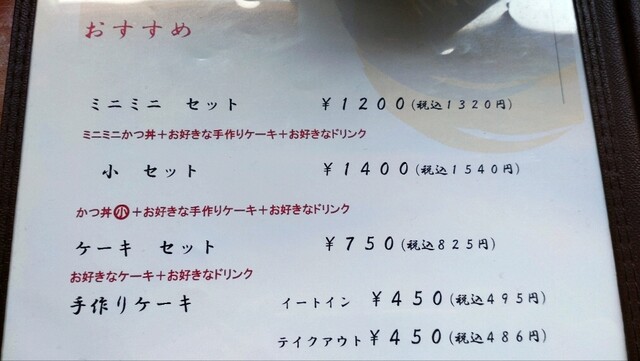 おすすめ
ミニミニ セット ￥1200(税込1320円)
ミニミニかつ丼＋お好きな手作りケーキ＋お好きなドリンク
小 セット ￥1400(税込1540円)
かつ丼㊙＋お好きな手作りケーキ＋お好きなドリンク
ケーキ セット ￥750(税込825円)
お好きなケーキ＋お好きなドリンク
手作りケーキ イートイン ￥450(税込495円)
テイクアウト￥450(税込486円)